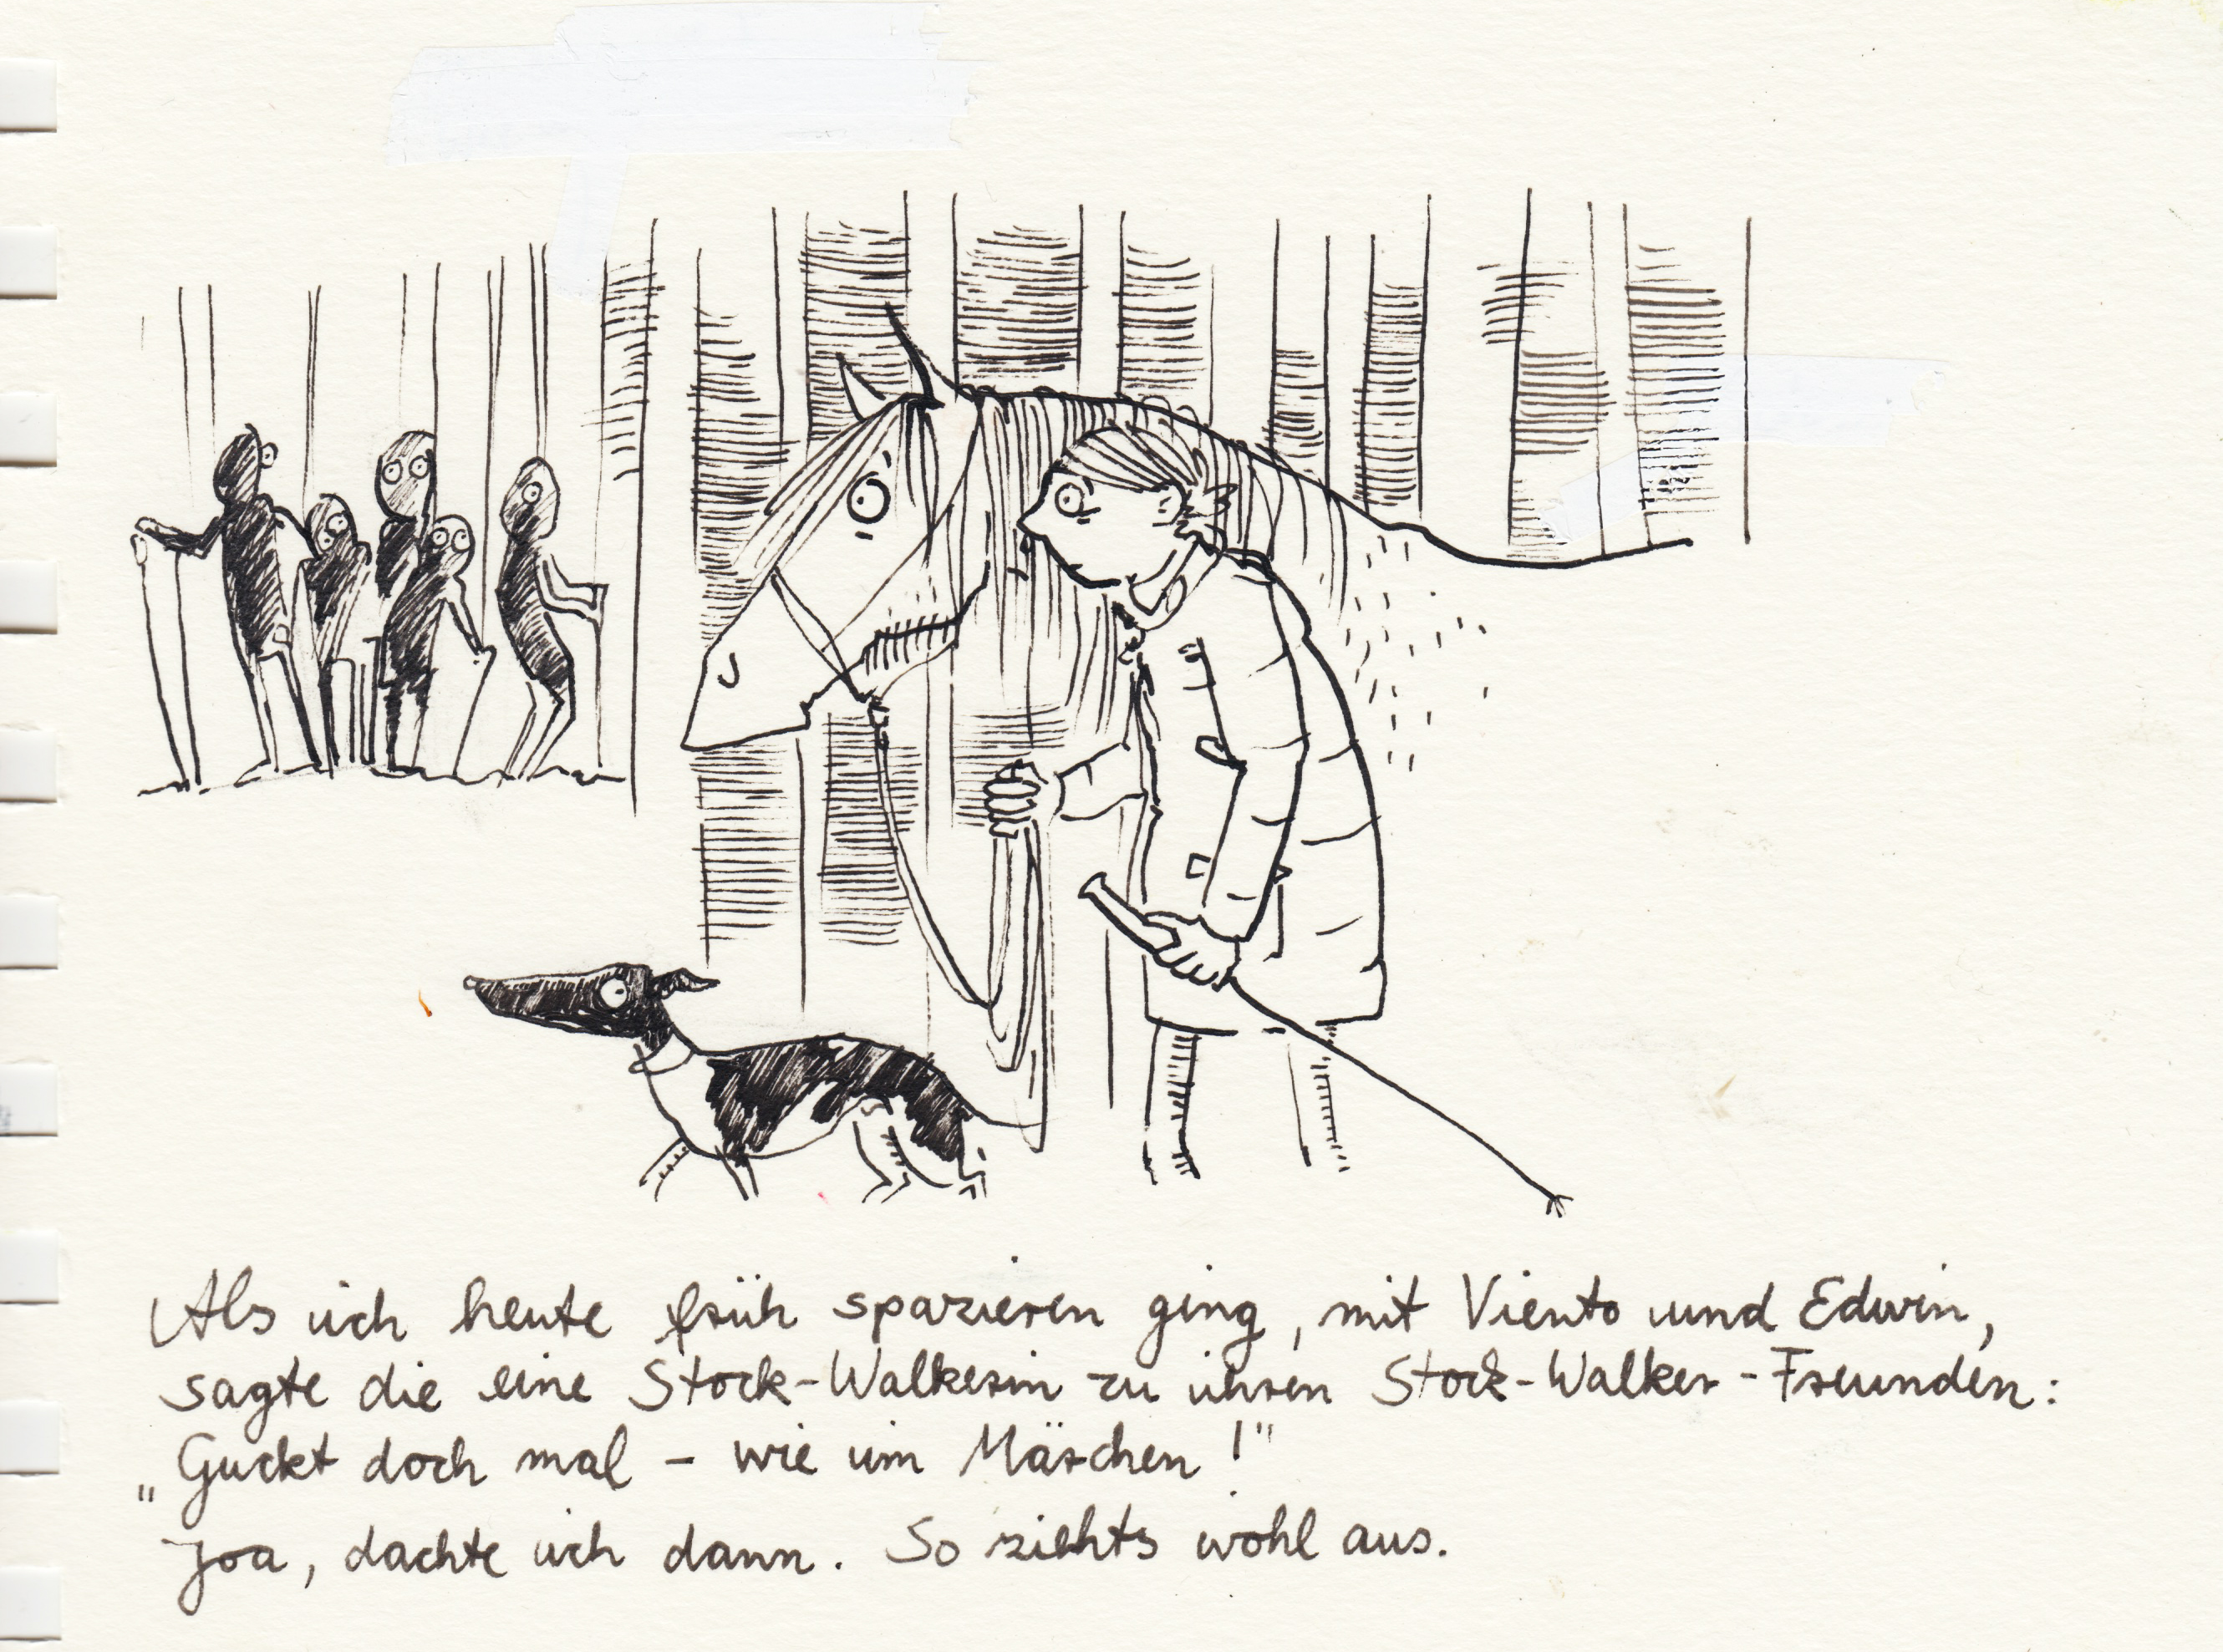 Als ich heute früh spazieren ging, mit Viento und Edwin,
sagte die eine Stock-Walkerin zu ihren Stock-Walker-Freunden:
„Guckt doch mal – wie im Märchen!"
Joa, dachte ich dann. So siehts wohl aus.